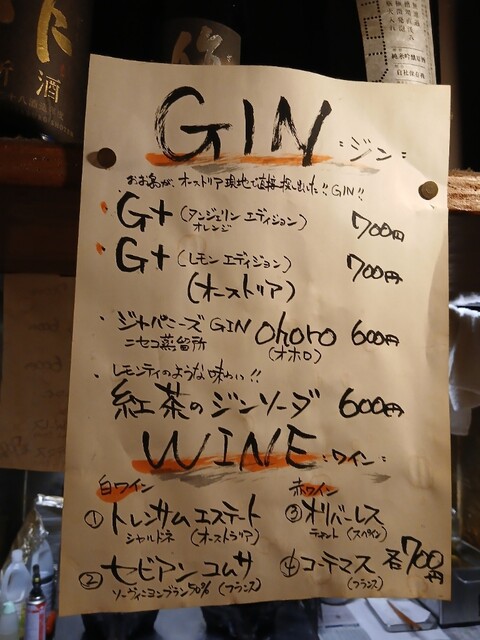 酒
純米吟醸原酒
GIN :ジン:
オーストリア現地で直接探し出した!! GIN!!
・G+ (タンジェリン エディション) 700円
オレンジ
・G+ (レモン エディション) 700円
(オーストリア)
・ジャパニーズ GIN ohoro 600円
ニセコ蒸留所 (オホロ)
・レモンティのような味わい!!
紅茶のジンソーダ 600円
WINE :ワイン:
白ワイン
① トレンサム エステート
シャルドネ (オーストラリア)
② セビアン コムサ
ソーヴィニヨンブラン 50% (フランス)
赤ワイン
③ オリバーレス
(スペイン)
④ コーテマス 各700円
(フランス)